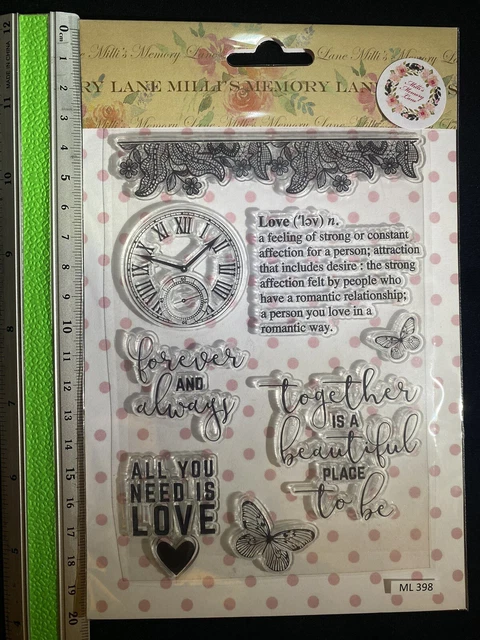 Lane Milli's Memory Lane Milli's
RY LANE MILLI'S MEMORY LAN
Milli's Memory
Milli's
Memory
Lane!
Love ('lǝv) n.
a feeling of strong or constant
affection for a person; attraction
that includes desire : the strong
affection felt by people who
have a romantic relationship;
a person you love in a
romantic way.
forever
AND
always
together
IS A
beautiful
PLACE
to be
ALL YOU
NEED IS
LOVE
ML 398
0cm 1 2 3 4 5 6 7 8 9 10 11 12 13 14 15 16 17 18 19 20
12 11 10 9 8 7 6 5 4
MADE IN CHINA
XII I II III IIII V VI VII VIII IX X XI